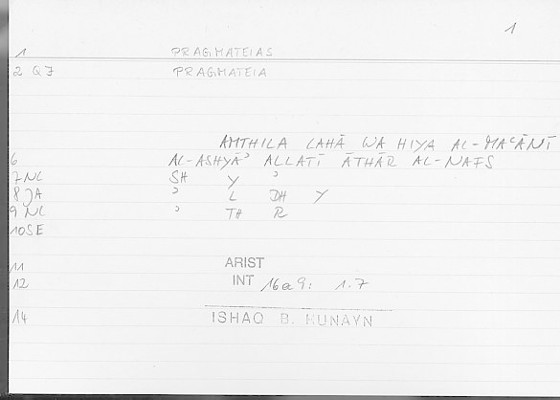 1
1 PRAGMATEIAS
2 Q7 PRAGMATEIA
AMTHILA LAHĀ WA HIYA AL-MAʿĀNĪ
6 AL-ASHYĀʾ ALLATĪ ĀTHĀR AL-NAFS
7NL SH Y ʾ
8JA ʾ L DH Y
9NL ʾ TH R
10SE
11 ARIST
12 INT 16a9: 1.7
14 ISHAQ B. HUNAYN